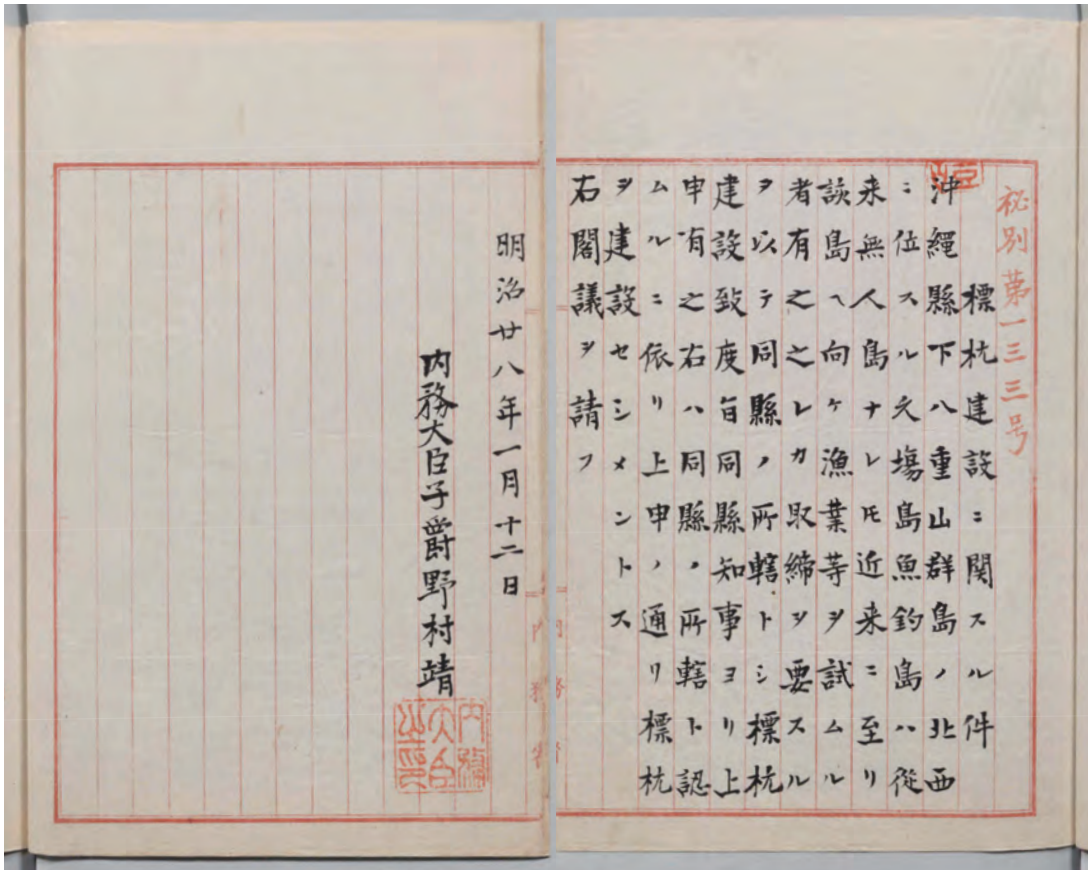 秘別第一三三号
標杭建設ニ関スル件
沖繩縣下八重山群島ノ北西
ニ位スル久塲島魚釣島ハ從
来無人島ナレ𪜈近来ニ至リ
該島ヘ向ケ漁業等ヲ試ムル
者有之之レカ取締ヲ要スル
ヲ以テ同縣ノ所轄トシ標杭
建設致度旨同縣知事ヨリ上
申有之右ハ同縣ノ所轄ト認
ムルニ依リ上申ノ通リ標杭
ヲ建設セシメントス
右閣議ヲ請フ
明治廿八年一月十二日
内務大臣子爵野村靖
内務大臣之印